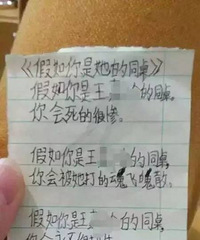 《假如你是她的同桌》
假如你是王 的同桌,
你会死的很惨。
假如你是王 的同桌,
你会被她打的魂飞魄散。
假如你是王 的同桌